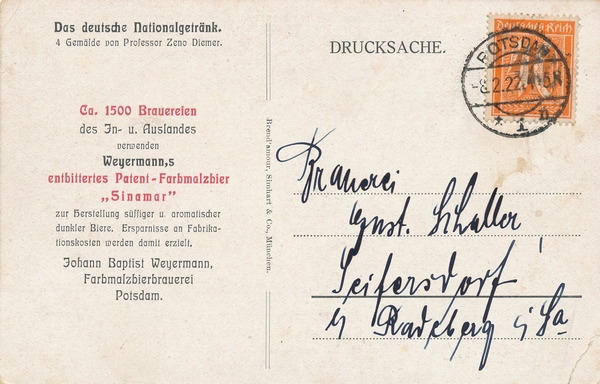 Das deutsche Nationalgetränk.
4 Gemälde von Professor Zeno Diemer.
Ca. 1500 Brauereien
des In- u. Auslandes
verwenden
Weyermann,s
entbittertes Patent-Farbmalzbier
„Sinamar"
zur Herstellung süffiger u. aromatischer
dunkler Biere. Ersparnisse an Fabrika-
tionskosten werden damit erzielt.
Johann Baptist Weyermann,
Farbmalzbierbrauerei
Potsdam.
Brend'amour, Simhart & Co., München.
DRUCKSACHE.
Deutsches Reich
POTSDAM
-8.2.22.
* 1 n
Brauerei
Gust. Schaller
Seifersdorf
b/ Radeberg i/Sa